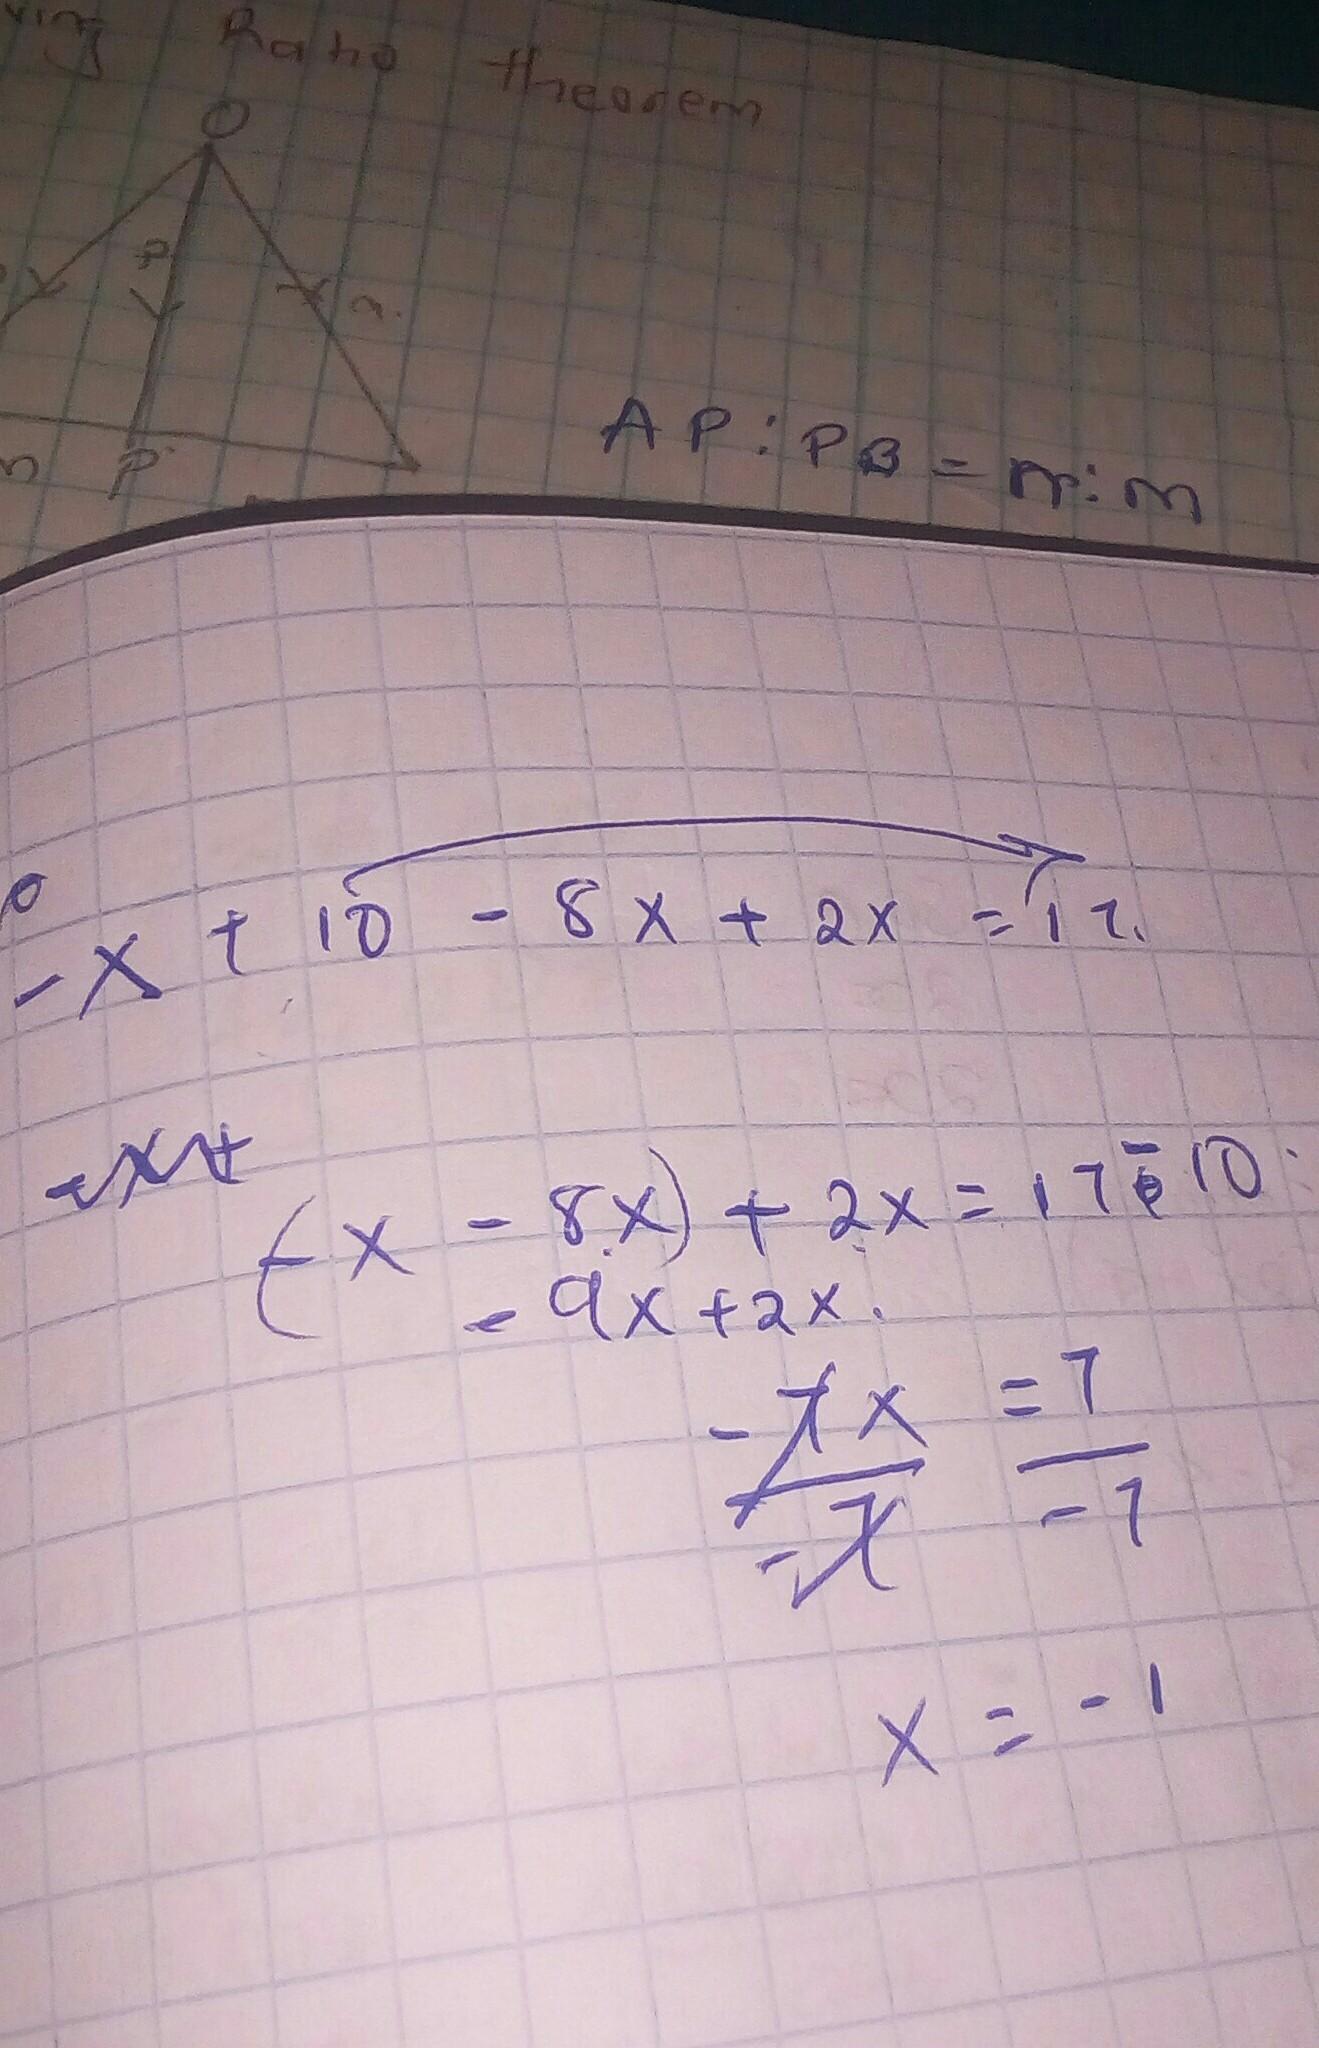 Ratio theorem
O
P
a.
AP:PB = n:m
n P
-x + 10 - 8x + 2x = 17.
-x+
(-x - 8x) + 2x = 17 - 10
- 9x + 2x.
-7x = 7
-7 -7
x = -1